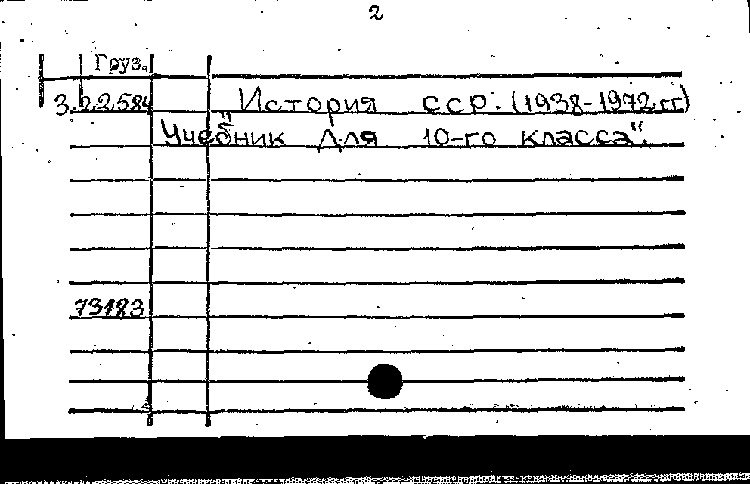 2
Груз.
3.22584 „История ССР. (1938-1972гг)
Учебник для 10-го класса“.
73183